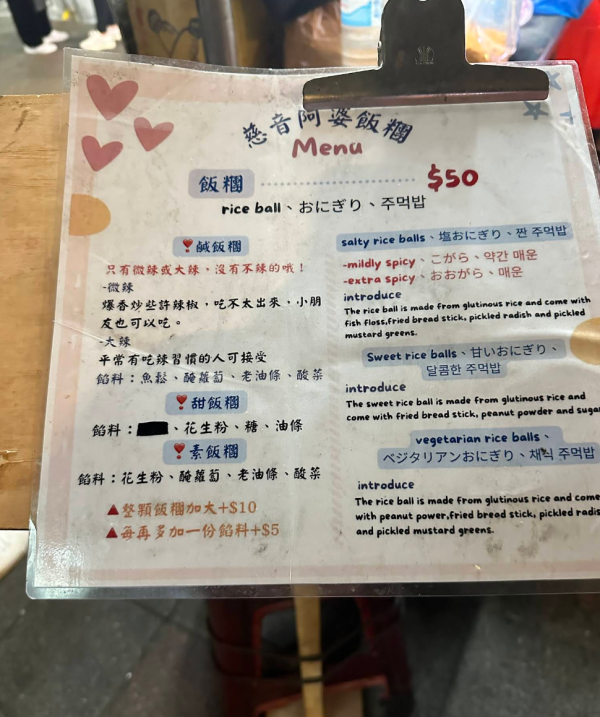 慈音阿婆飯糰
Menu
飯糰 $50
rice ball、おにぎり、주먹밥
鹹飯糰
只有微辣或大辣，沒有不辣的哦！
-微辣
爆香炒些許辣椒，吃不太出來，小朋
友也可以吃。
-大辣
平常有吃辣習慣的人可接受
餡料：魚鬆、醃蘿蔔、老油條、酸菜
甜飯糰
餡料：、花生粉、糖、油條
素飯糰
餡料：花生粉、醃蘿蔔、老油條、酸菜
▲整顆飯糰加大+$10
▲每再多加一份餡料+$5
salty rice balls、塩おにぎり、짠 주먹밥
-mildly spicy、こがら、약간 매운
-extra spicy、おおがら、매운
introduce
The rice ball is made from glutinous rice and come with
fish floss,fried bread stick, pickled radish and pickled
mustard greens.
Sweet rice balls、甘いおにぎり、
달콤한 주먹밥
introduce
The sweet rice ball is made from glutinous rice and
come with fried bread stick, peanut powder and sugar
vegetarian rice balls、
ベジタリアンおにぎり、채식 주먹밥
introduce
The rice ball is made from glutinous rice and come
with peanut power,fried bread stick, pickled radis
and pickled mustard greens.